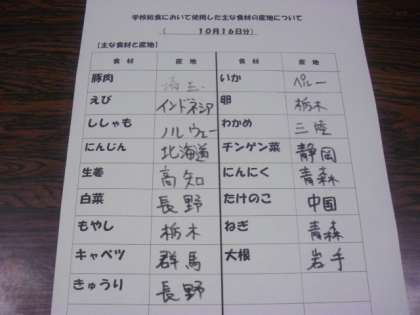 学校給食において使用した主な食材の産地について
( 10月16日分)
【主な食材と産地】
食材 産地 食材 産地
豚肉 埼玉 いか ペルー
えび インドネシア 卵 栃木
ししゃも ノルウェー わかめ 三陸
にんじん 北海道 チンゲン菜 静岡
生姜 高知 にんにく 青森
白菜 長野 たけのこ 中国
もやし 栃木 ねぎ 青森
キャベツ 群馬 大根 岩手
きゅうり 長野